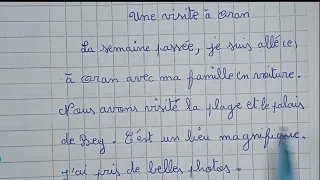 Une visite à Oran
La semaine passée, je suis allé(e)
à Oran avec ma famille en voiture.
Nous avons visité la plage et le palais
de Bey. C'est un lieu magnifique.
j'ai pris de belles photos.